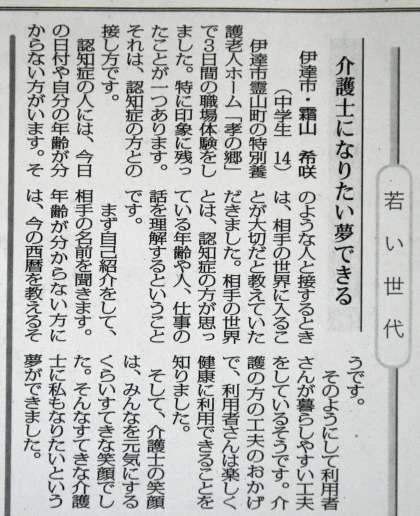 若い世代
介護士になりたい夢できる
伊達市・霜山 希咲
(中学生 14)
伊達市霊山町の特別養
護老人ホーム「孝の郷」
で3日間の職場体験をし
ました。特に印象に残っ
たことが一つあります。
それは、認知症の方との
接し方です。
認知症の人には、今日
の日付や自分の年齢が分
からない方がいます。そ
のような人と接するとき
は、相手の世界に入るこ
とが大切だと教えていた
だきました。相手の世界
とは、認知症の方が思っ
ている年齢や人、仕事の
話を理解するということ
です。
まず自己紹介をして、
相手の名前を聞きます。
年齢が分からない方に
は、今の西暦を教えるそ
うです。
そのようにして利用者
さんが暮らしやすい工夫
をしているそうです。介
護の方の工夫のおかげ
で、利用者さんは楽しく
健康に利用できることを
知りました。
そして、介護士の笑顔
は、みんなを元気にする
くらいすてきな笑顔でし
た。そんなすてきな介護
士に私もなりたいという
夢ができました。